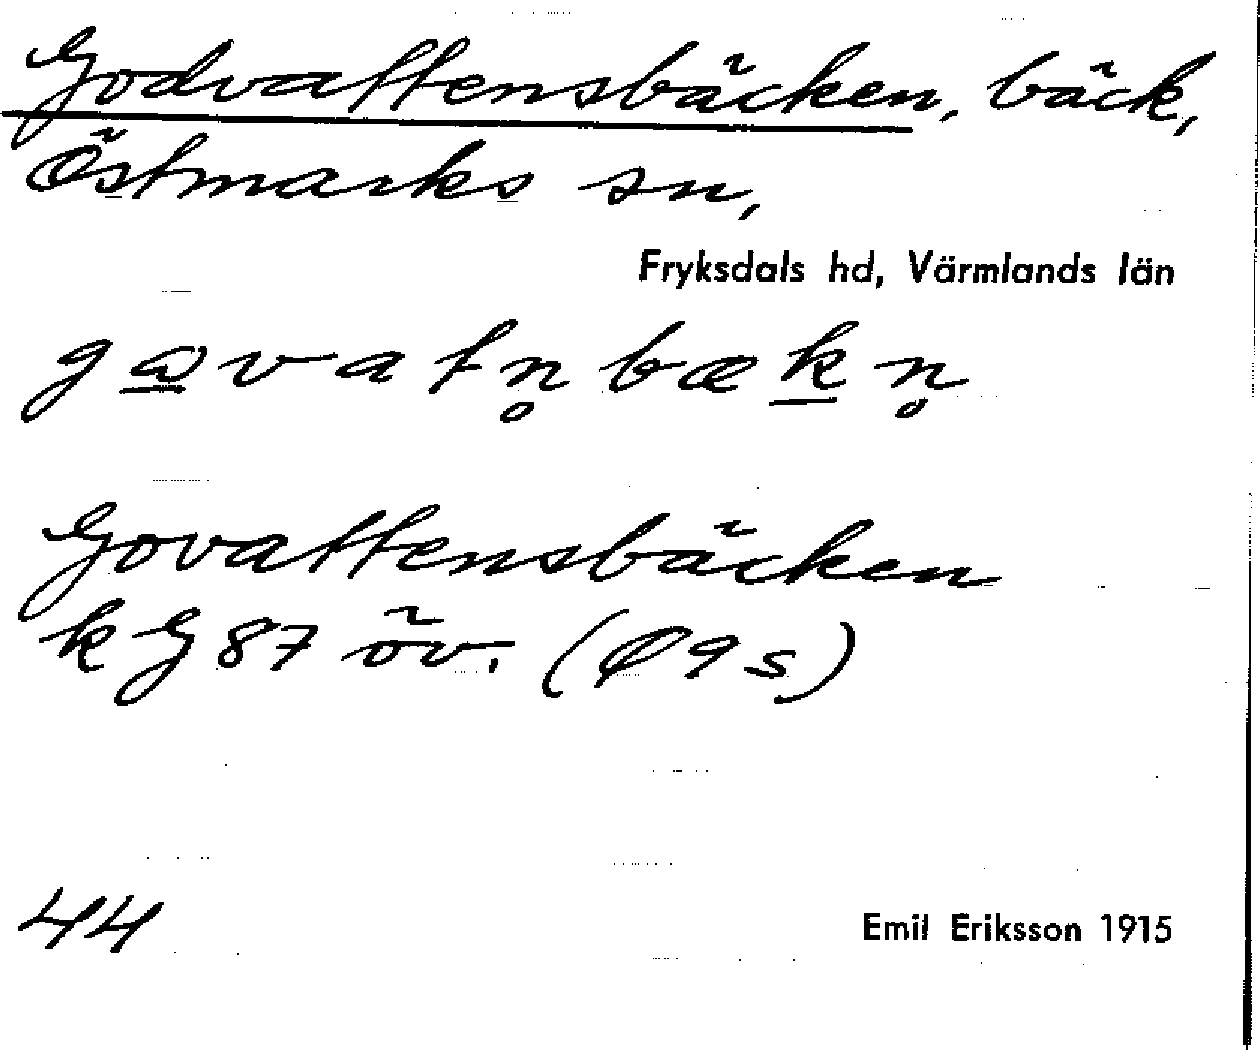 Godvattensbäcken, bäck,
Östmarks sn,
Fryksdals hd, Värmlands län
gωvatn̥bækn̥
Govattensbäcken
k G 87 öv. (Ø 9 s)
44
Emil Eriksson 1915